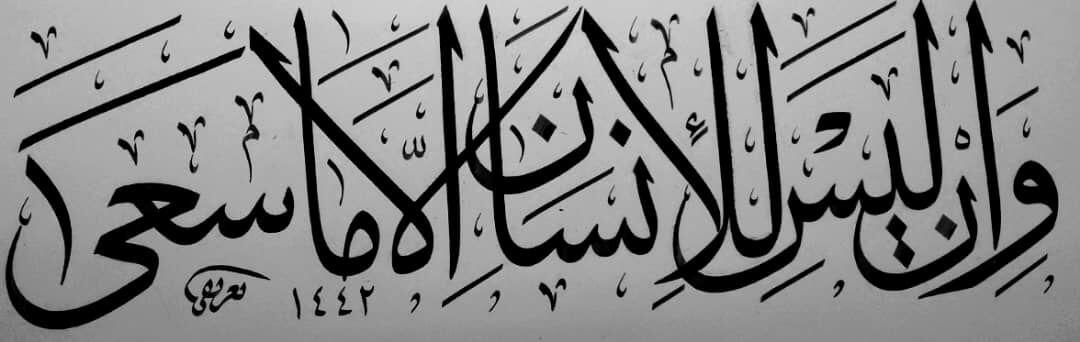 وَأَن لَّيْسَ لِلْإِنسَانِ إِلَّا مَا سَعَىٰ
١٤٤٢